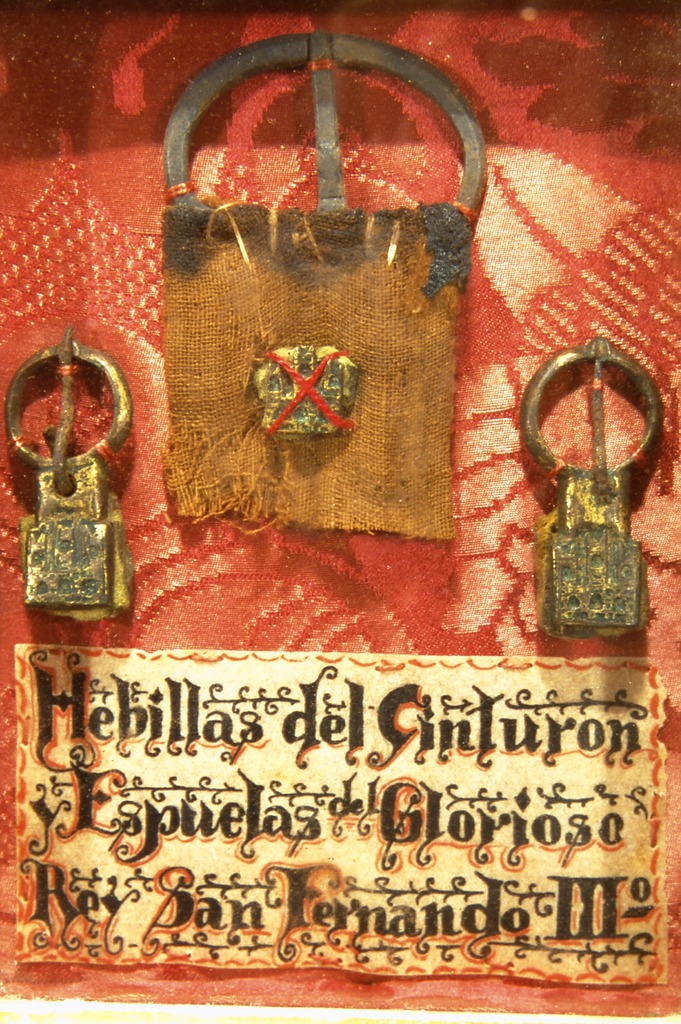 Hebillas del Cinturon
y Espuelas del Glorioso
Rey San Fernando IIIº